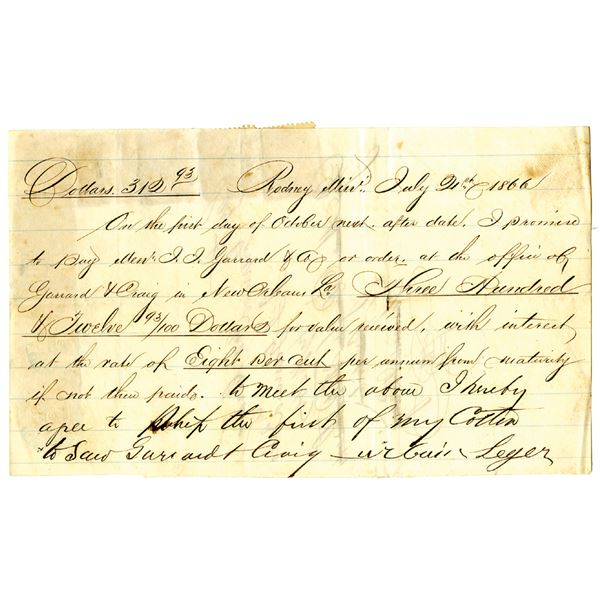 Dollars. 312 93 Rodney Miss. July 21st 1866
On the first day of October next. after date. I promise
to pay Mess. J. J. Garrard & Co or order. at the office of
Garrard & Craig in New Orleans La. Three Hundred
& Twelve 93/100 Dollars for value received, with interest
at the rate of Eight per cent per annum from maturity
if not then paid. to meet the above I hereby
agree to ship the first of my Cotton
to Said Garrard & Craig Leger